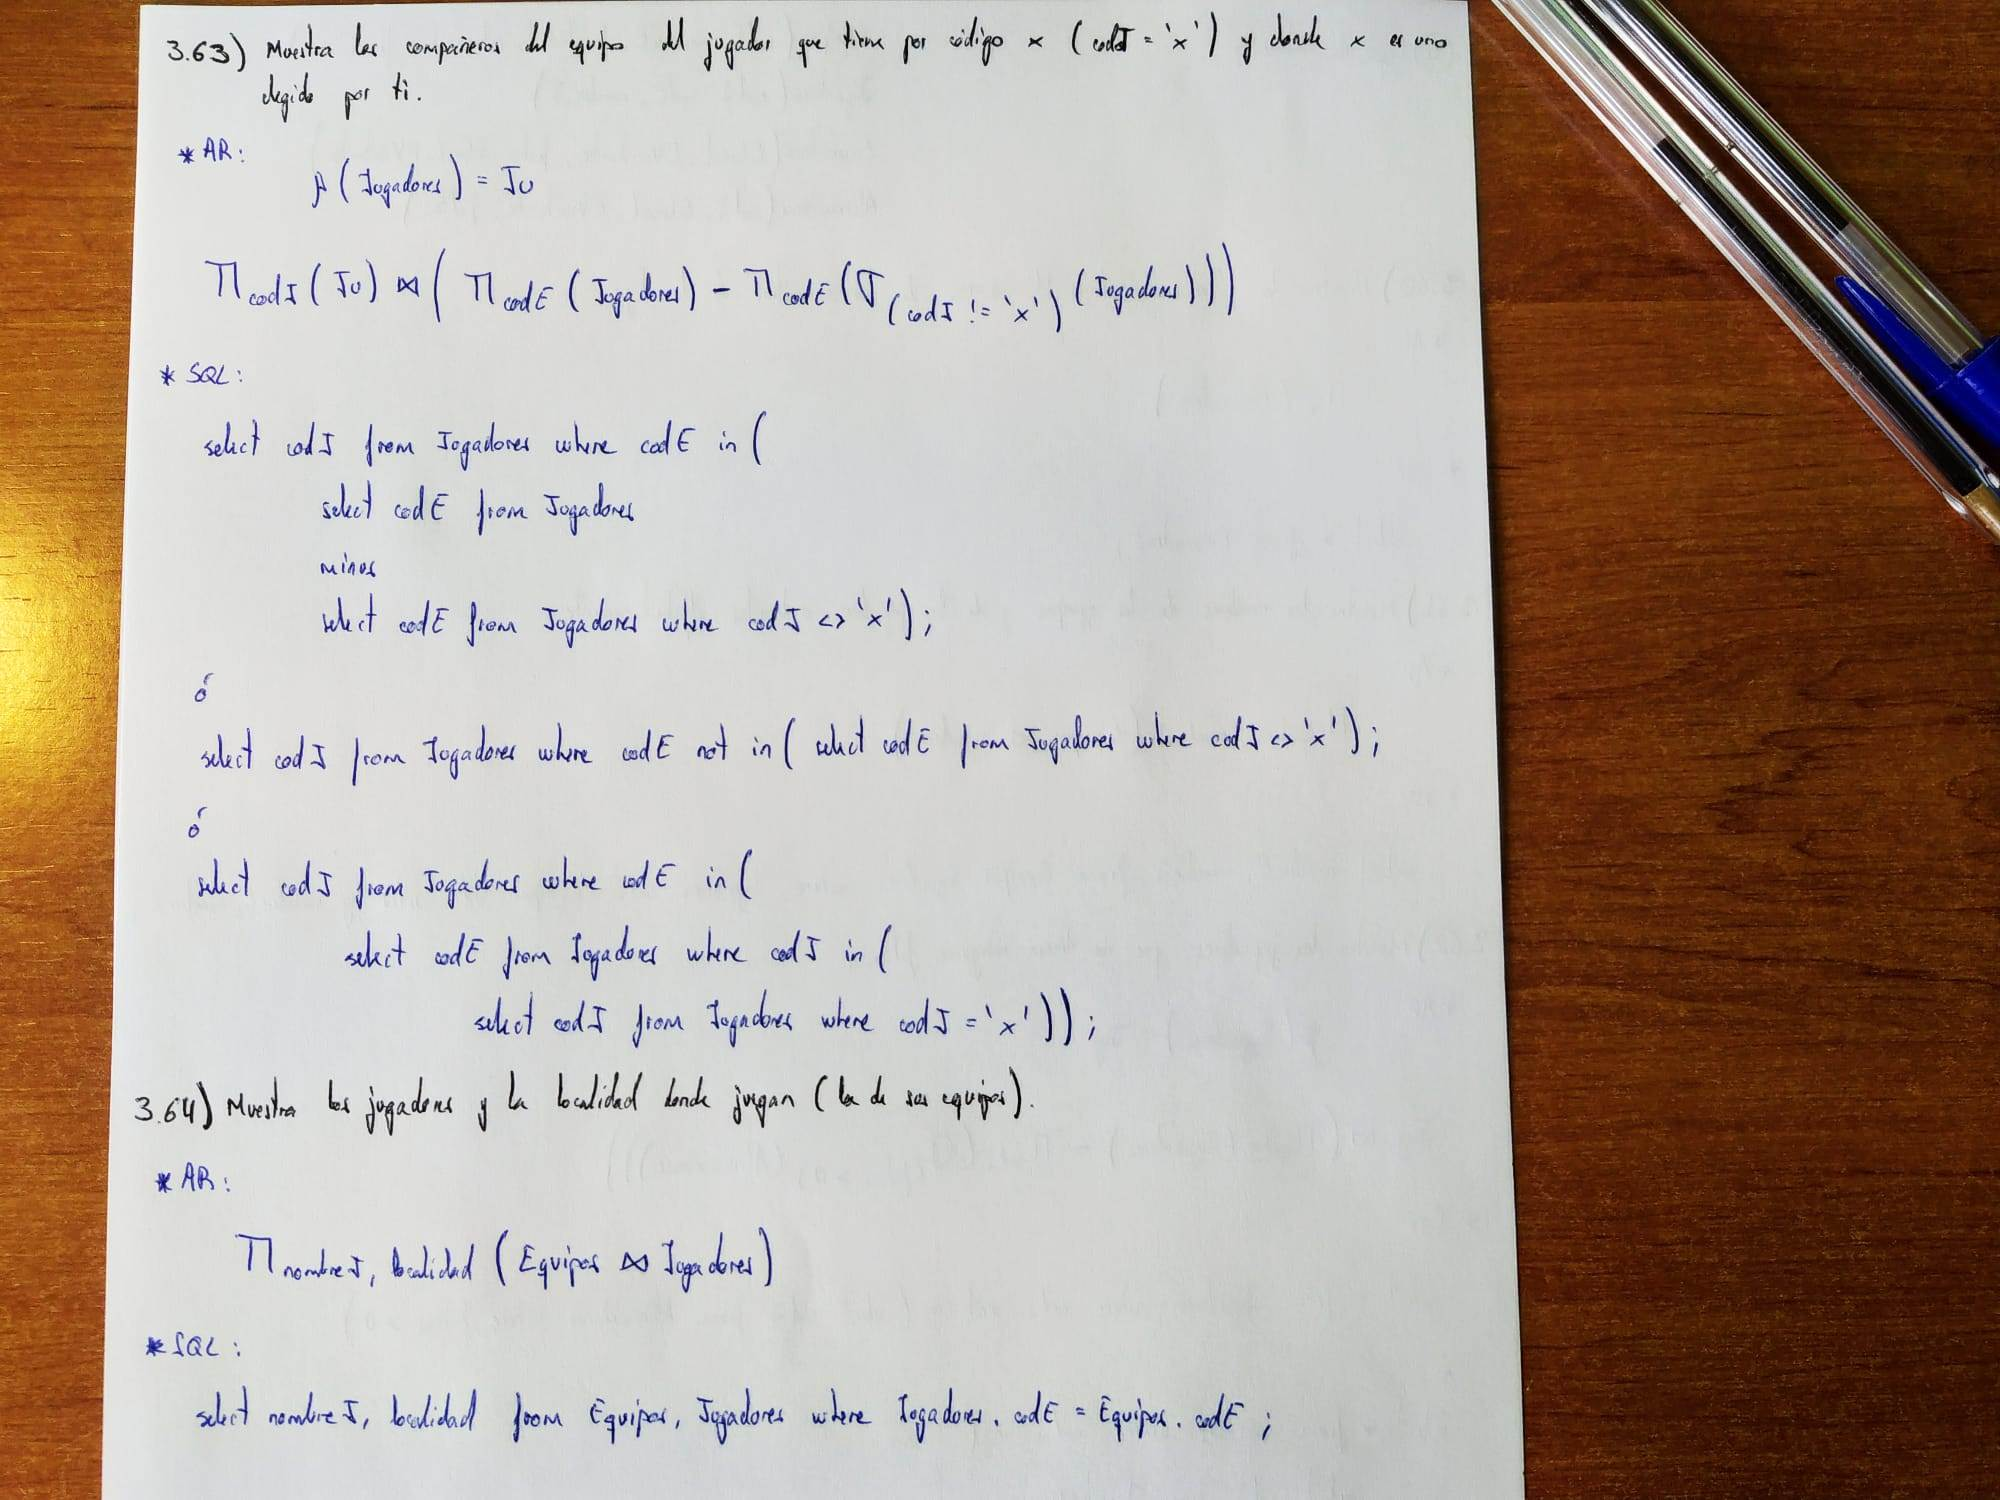 3.63) Muestra los compañeros del equipo del jugador que tiene por código x (codJ = 'x') y donde x es uno
elegido por ti.
* AR:
ρ (Jugadores) = Ju
Π codJ (Ju) ⋈ ( Π codE (Jugadores) - Π codE (σ (codJ != 'x') (Jugadores)))
* SQL:
select codJ from Jugadores where codE in (
select codE from Jugadores
minus
select codE from Jugadores where codJ <> 'x');
ó
select codJ from Jugadores where codE not in ( select codE from Jugadores where codJ <> 'x');
ó
select codJ from Jugadores where codE in (
select codE from Jugadores where codJ in (
select codJ from Jugadores where codJ = 'x'));
3.64) Muestra los jugadores y la localidad donde juegan (la de sus equipos).
* AR:
Π nombreJ, localidad (Equipos ⋈ Jugadores)
* SQL:
select nombreJ, localidad from Equipos, Jugadores where Jugadores.codE = Equipos.codE;